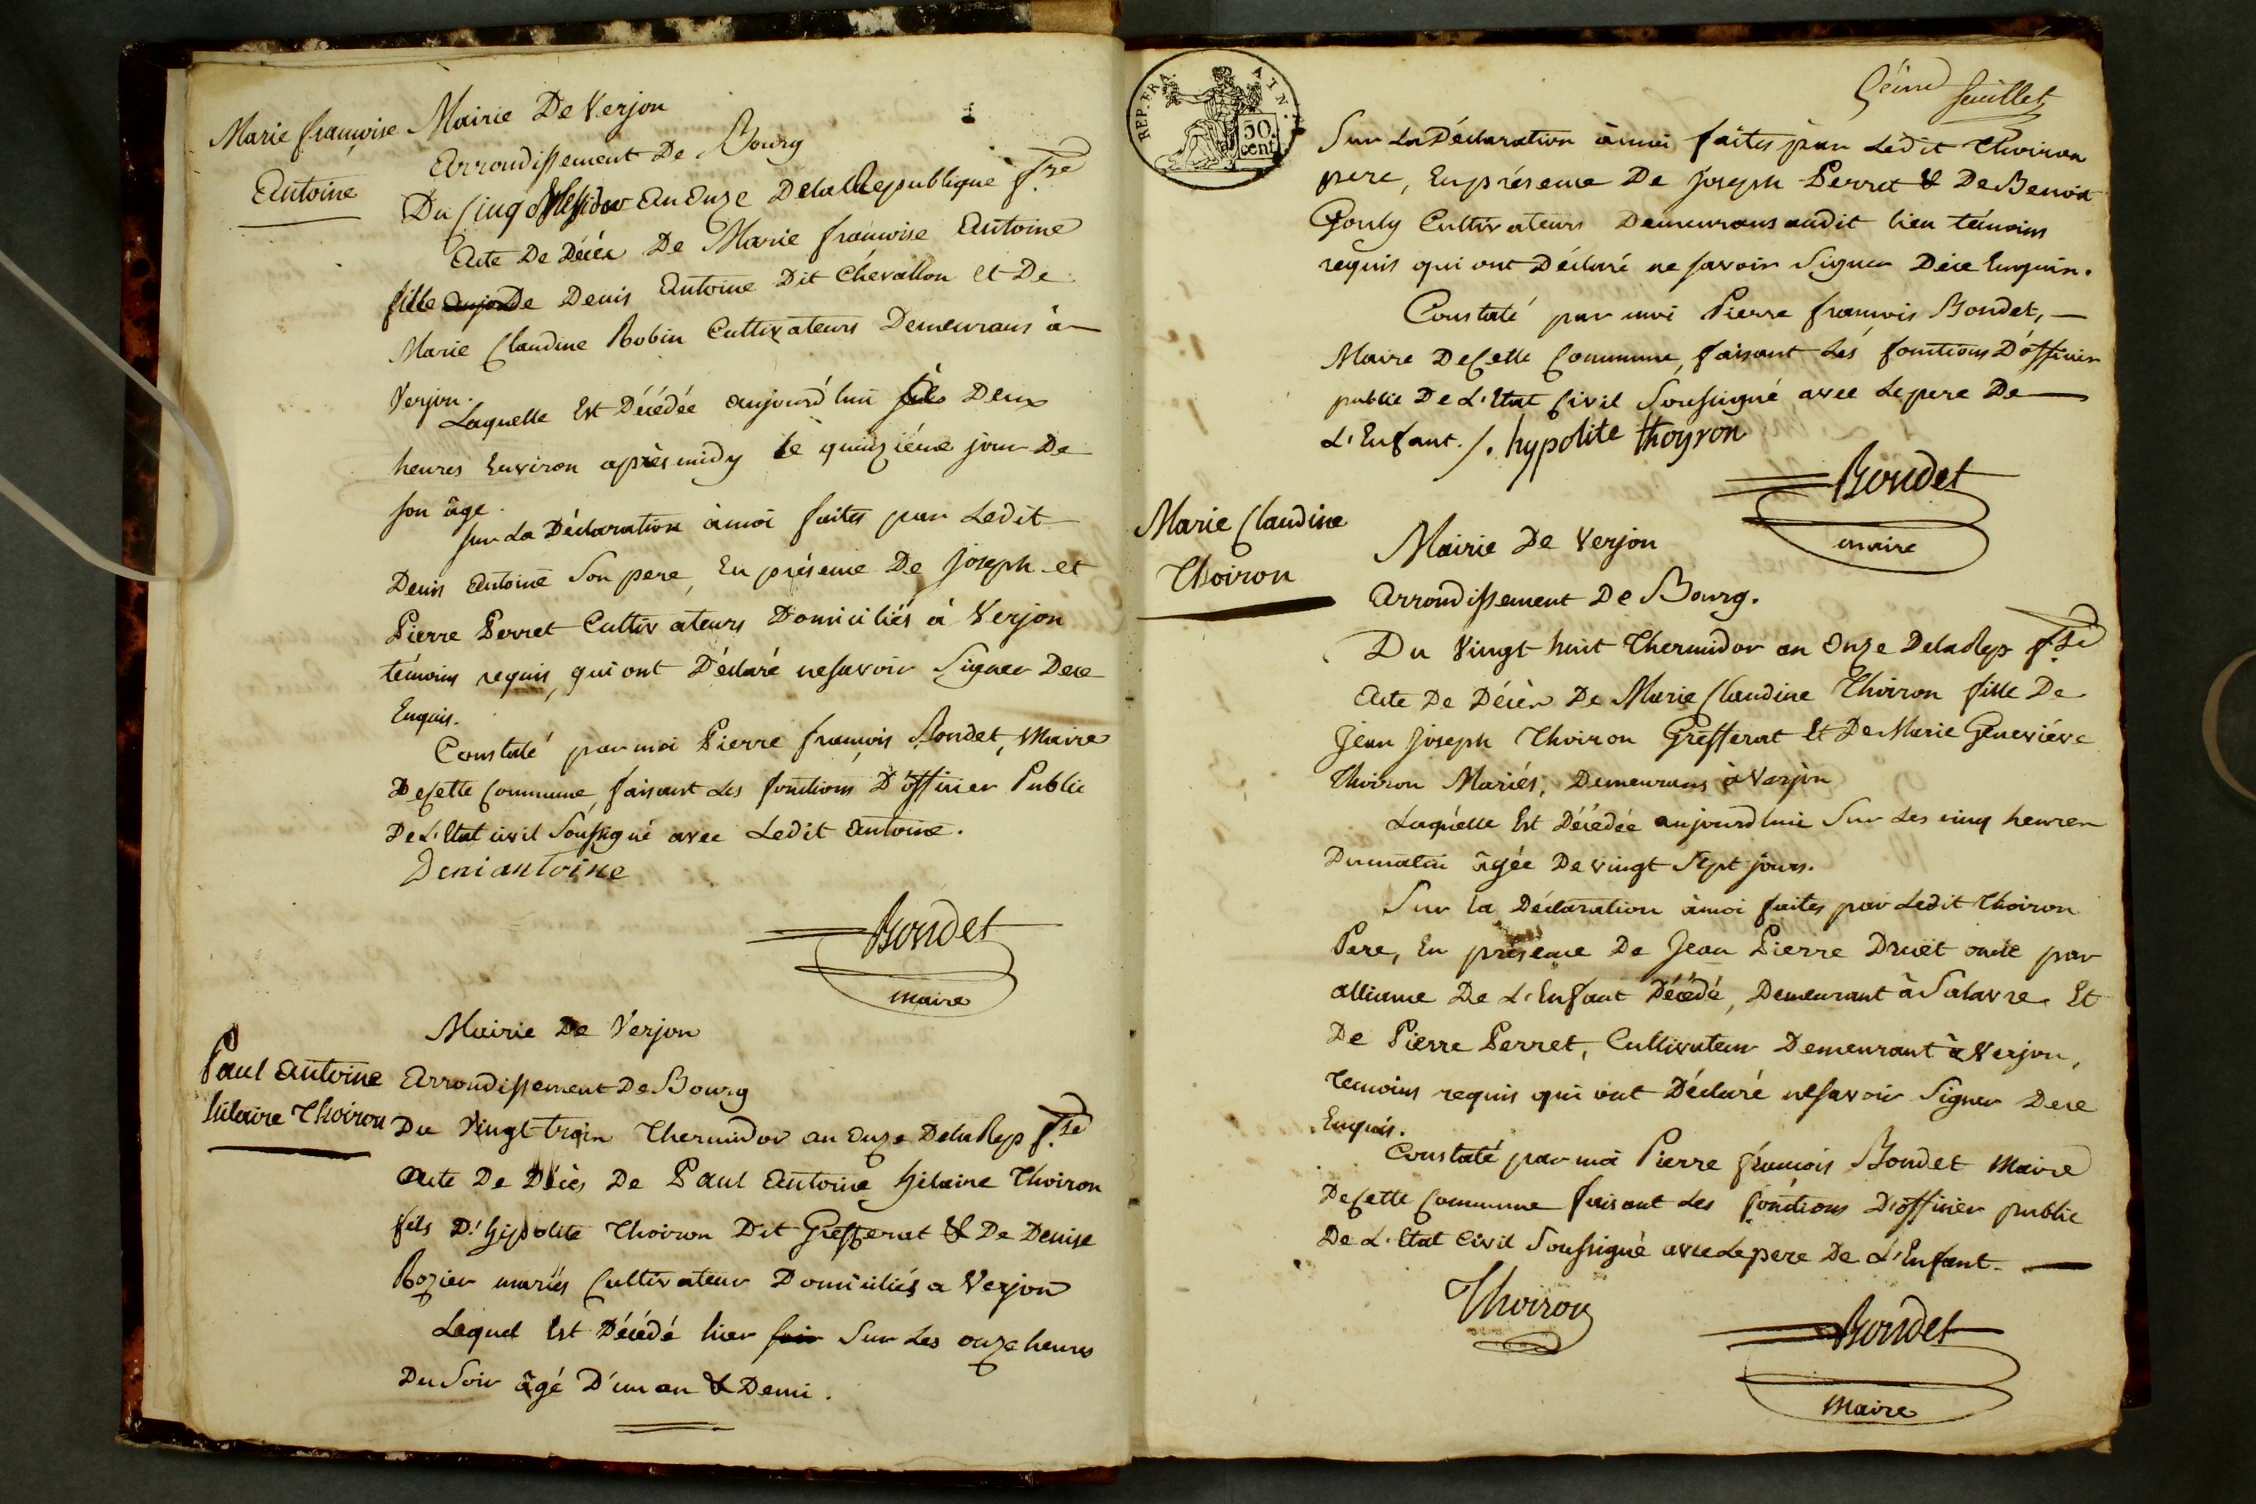 Marie françoise
Antoine
Mairie De Verjon
Arrondissement De Bourg
Du Cinq Messidor An Onze Dela Republique fse
Acte De Décès De Marie françoise Antoine
fille De Denis Antoine Dit Chevallon et De
Marie Claudine Robin Cultivateurs Demeurans à
Verjon.
Laquelle Est Décédée aujourd'hui Deux
heures Environ après midy le quinziéme jour De
son âge.
sur La Déclaration à moi faites par Ledit
Denis Antoine Son pere, En présence De Joseph et
Pierre Perret Cultivateurs Domiciliés à Verjon
témoins requis, qui ont Déclaré ne savoir Signer De ce
Enquis.
Constaté par moi Pierre françois Bondet, Maire
De Cette Commune, faisant Les fonctions D'officier Public
De L'Etat civil Soussigné avec Ledit Antoine.
Deni antoine
Bondet
maire
Paul Antoine
hilaire Thoiron
Mairie De Verjon
Arrondissement De Bourg
Du Vingt trois Thermidor an Onze Dela Rep fse
Acte De Décès De Paul Antoine hilaire Thoiron
fils D'hipolite Thoiron Dit Grefferat & De Denise
Rozier mariés Cultivateur Domiciliés a Verjon
Lequel Est Décédé hier soir Sur Les onze heures
Du Soir âgé D'un an & Demi.
REP. FRA. 50 cent
feuillet
Sur La Déclaration à moi faites par Ledit Thoiron
pere, En présence De Joseph Perret & De Benoit
Gouly Cultivateurs Demeurans audit lieu témoins
requis qui ont Déclaré ne savoir Signer De ce Enquis.
Constaté par moi Pierre françois Bondet,
Maire De Cette Commune, faisant Les fonctions D'officier
public De L'Etat Civil Soussigné avec Le pere De
L'Enfant. /. hypolite thoyron
Bondet
maire
Marie Claudine
Thoiron
Mairie De Verjon
Arrondissement De Bourg.
Du Vingt huit Thermidor an Onze Dela Rep fse
Acte De Décès De Marie Claudine Thoiron fille De
Jean Joseph Thoiron Grefferat Et De Marie Geneviéve
Thoiron Mariés, Demeurans à Verjon
Laquelle Est Décédée aujourdhui Sur Les cinq heures
Du matin âgée De vingt Sept jours.
Sur la Déclaration à moi faites par Ledit Thoiron
Pere, En présence De Jean Pierre Druet oncle par
alliance De L'Enfant Décédé, Demeurant à Salavre Et
De Pierre Perret, Cultivateur Demeurant à Verjon,
Temoins requis qui ont Déclaré ne savoir Signer De ce
Enquis.
Constaté par moi Pierre françois Bondet Maire
De Cette Commune faisant Les fonctions D'officier public
De L'Etat Civil Soussigné avec Le pere De L'Enfant.
Thoiron
Bondet
Maire